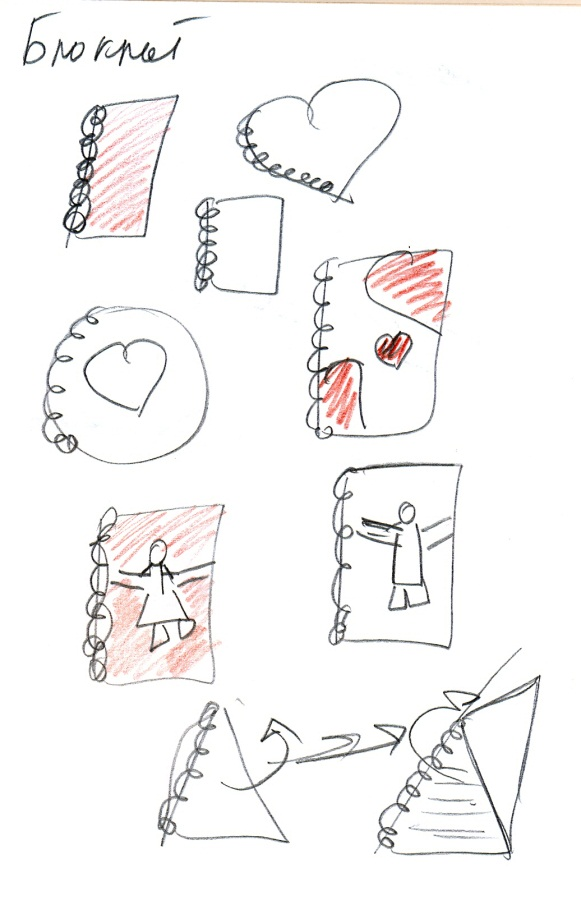 Блокнот